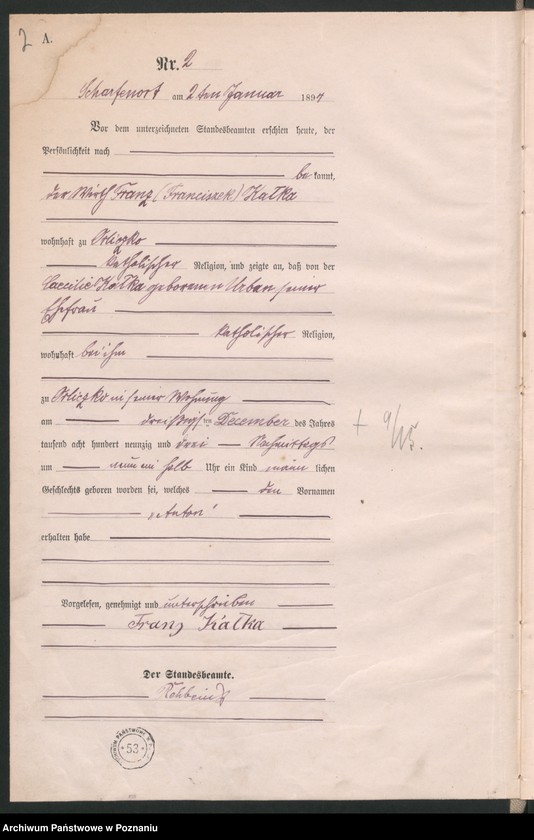 2 A.
Nr. 2
Scharfenort am 2ten Januar 1894
Vor dem unterzeichneten Standesbeamten erschien heute, der
Persönlichkeit nach
be kannt,
der Wirth Franz (Franciszek) Kałka
wohnhaft zu Orliczko
katholischer Religion, und zeigte an, daß von der
Caecilie Kałka geborenen Urban seiner
Ehefrau
katholischer Religion,
wohnhaft bei ihm
zu Orliczko in seiner Wohnung
am dreißigsten December des Jahres
tausend acht hundert neunzig und drei Nachmittags
um neun ein halb Uhr ein Kind männ lichen
Geschlechts geboren worden sei, welches den Vornamen
„Anton“
erhalten habe
Vorgelesen, genehmigt und unterschrieben
Franz Kałka
Der Standesbeamte.
53
Archiwum Państwowe w Poznaniu